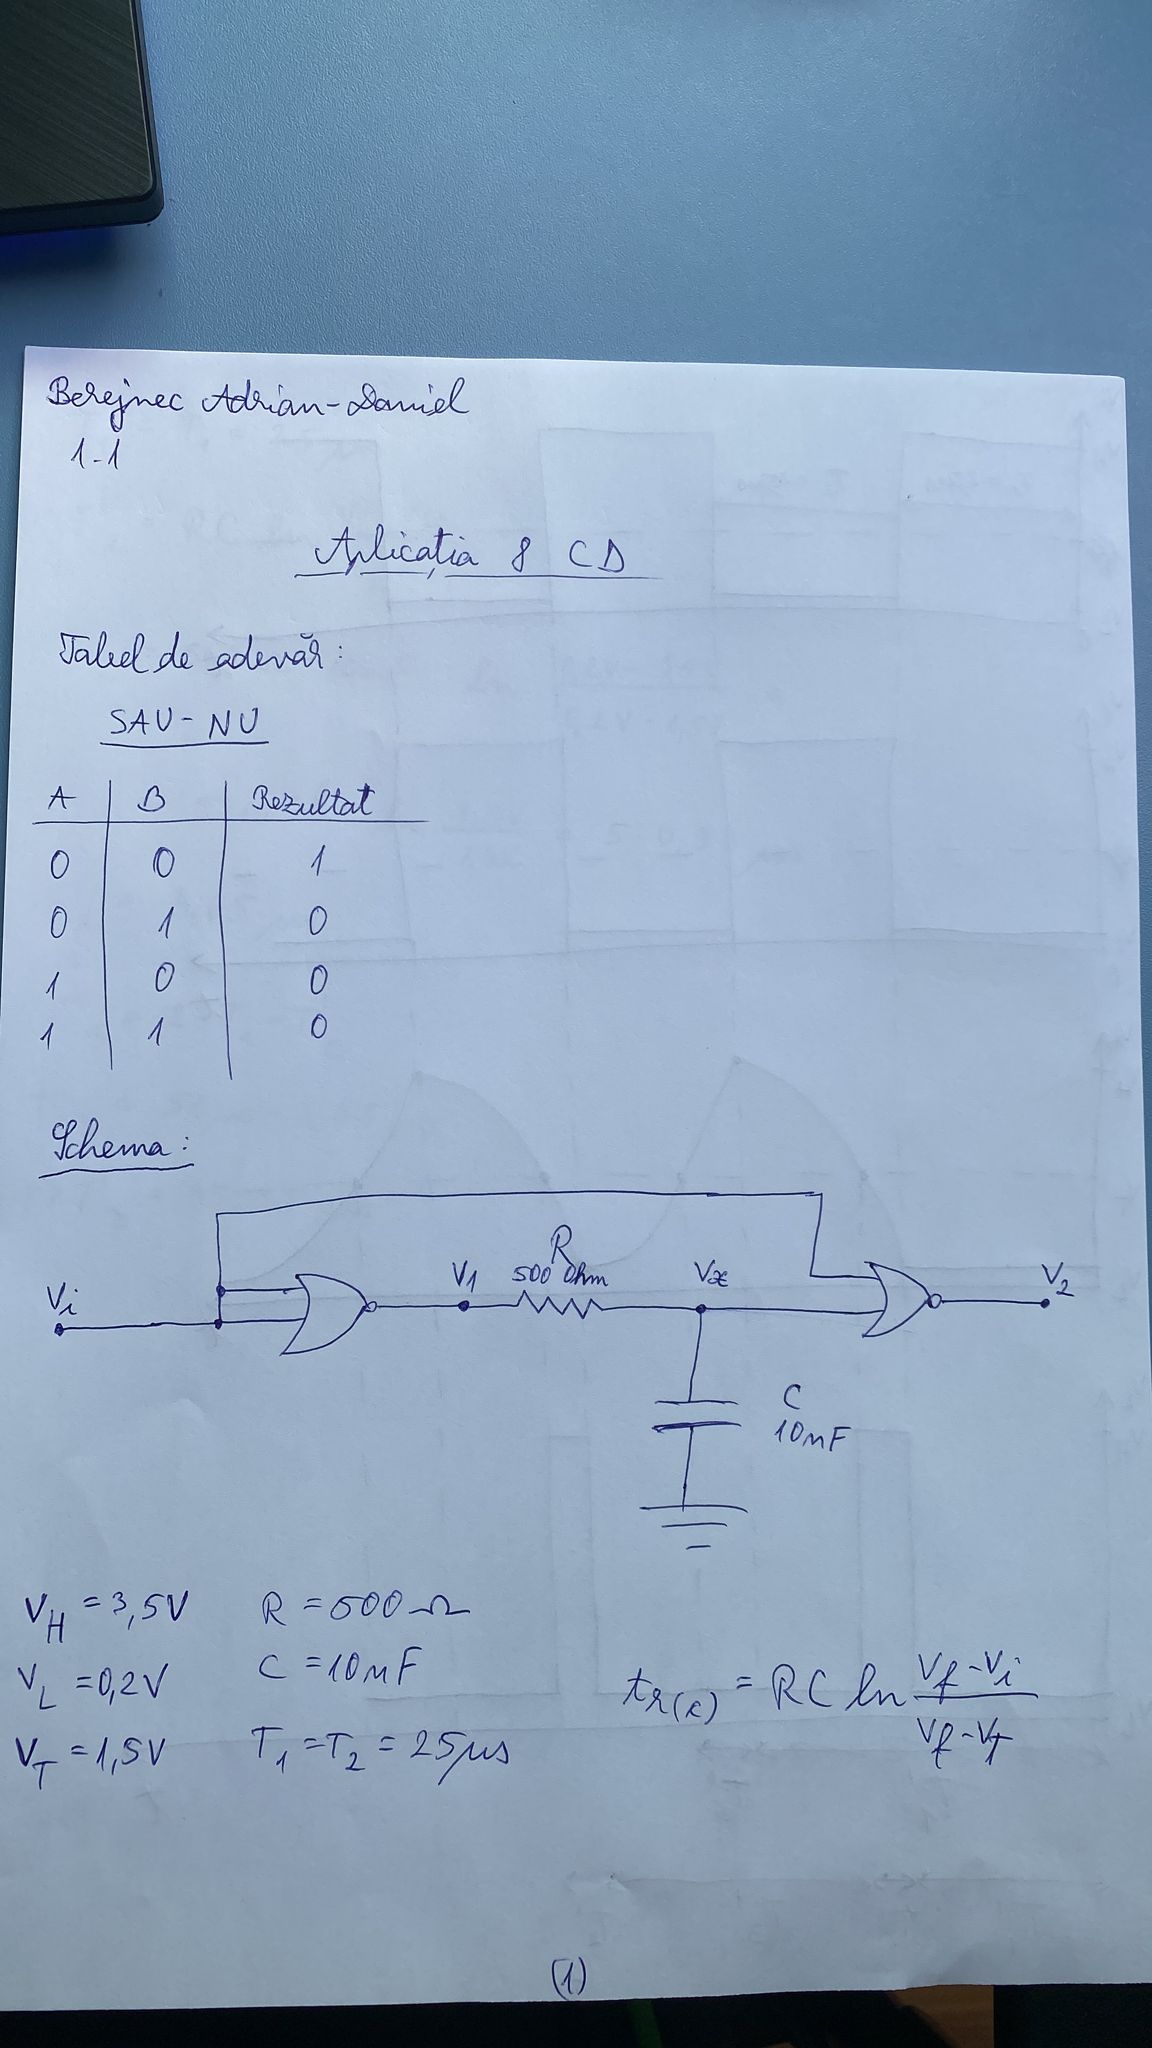 Berejnec Adrian-Daniel
1-1
Aplicația 8 CD
Tabel de adevăr:
SAU-NU
A B Rezultat
0 0 1
0 1 0
1 0 0
1 1 0
Schema:
Vi
V1
R
500 Ohm
Vx
V2
C
10nF
VH = 3,5V R = 500Ω
VL = 0,2V C = 10nF
VT = 1,5V T1 = T2 = 25μs
tr(c) = RC ln (Vf-Vi)/(Vf-VT)
(1)